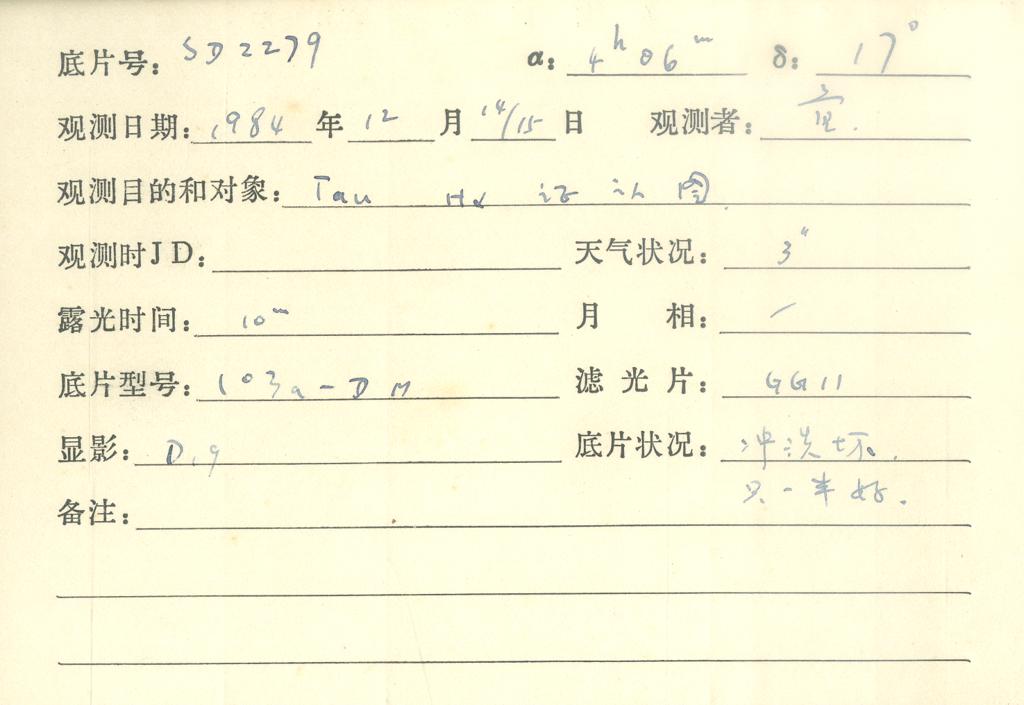 底片号: SD2279 α: 4h 06m δ: 17°
观测日期: 1984 年 12 月 14/15 日 观测者:
观测目的和对象: Tau Hα 证认图
观测时JD: 天气状况: 3"
露光时间: 10m 月 相: /
底片型号: 103a-D M 滤光片: GG11
显影: D19 底片状况: 冲洗坏.
只一半好.
备注: